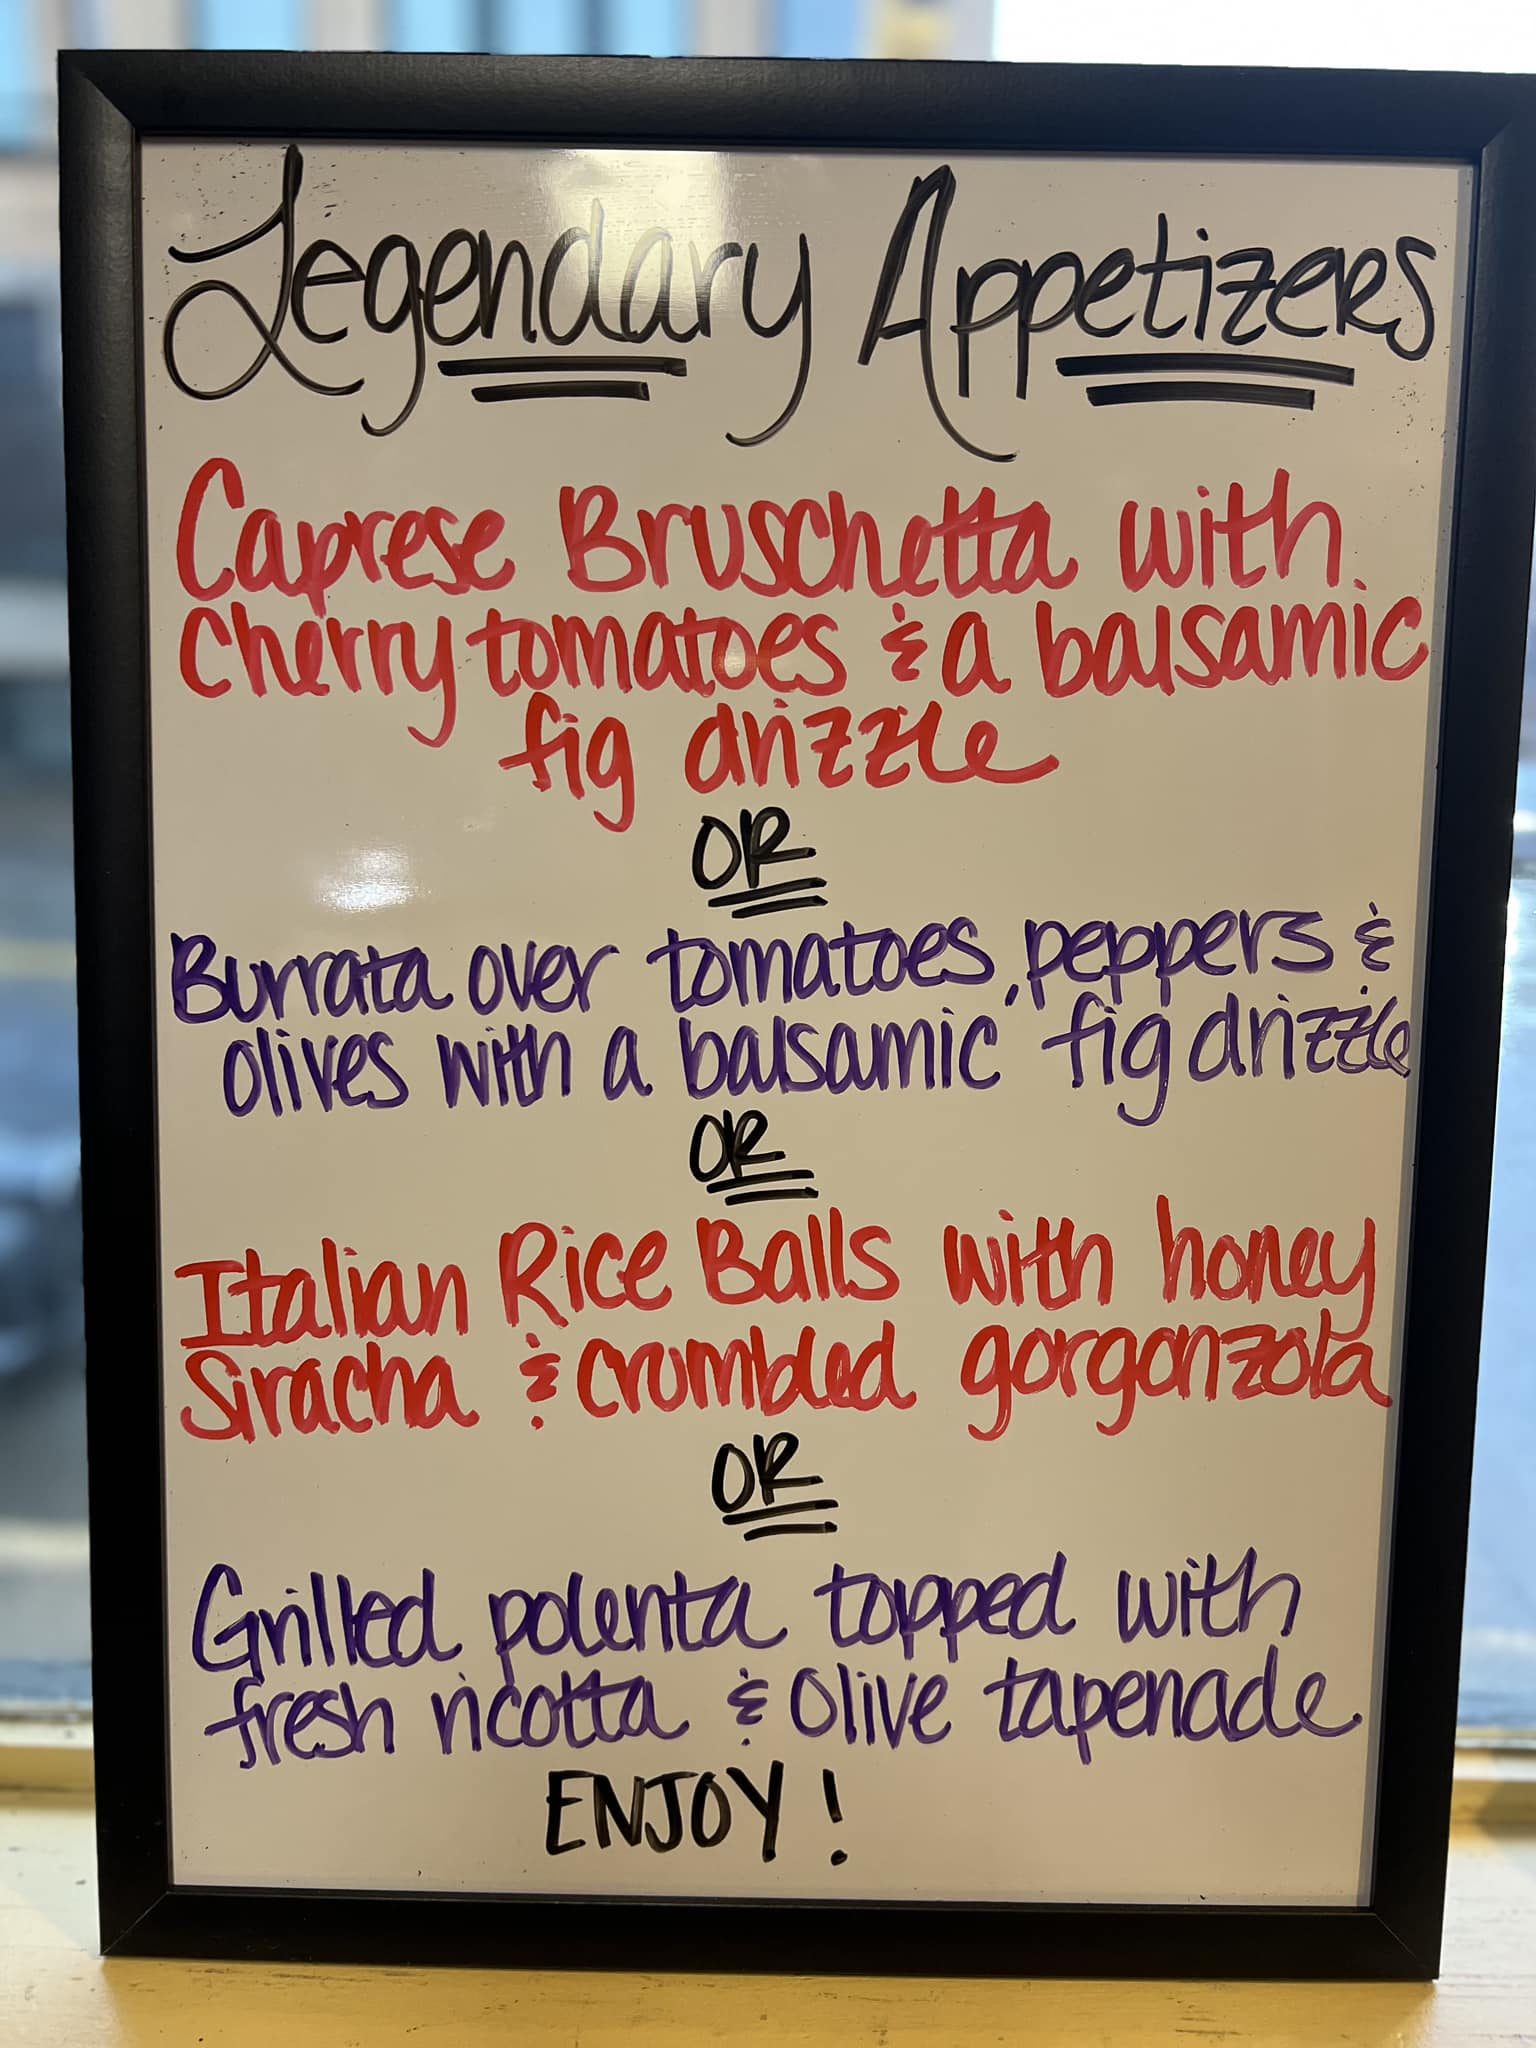 Legendary Appetizers
Caprese Bruschetta with
Cherry tomatoes & a balsamic
fig drizzle
OR
Burrata over tomatoes, peppers &
olives with a balsamic fig drizzle
OR
Italian Rice Balls with honey
Siracha & crumbled gorgonzola
OR
Grilled polenta topped with
fresh ricotta & olive tapenade
ENJOY!